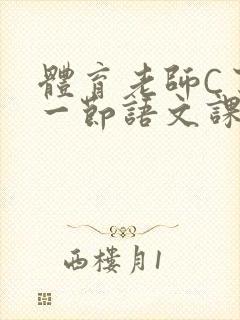 體育老師C
一節語文課
西樓月1